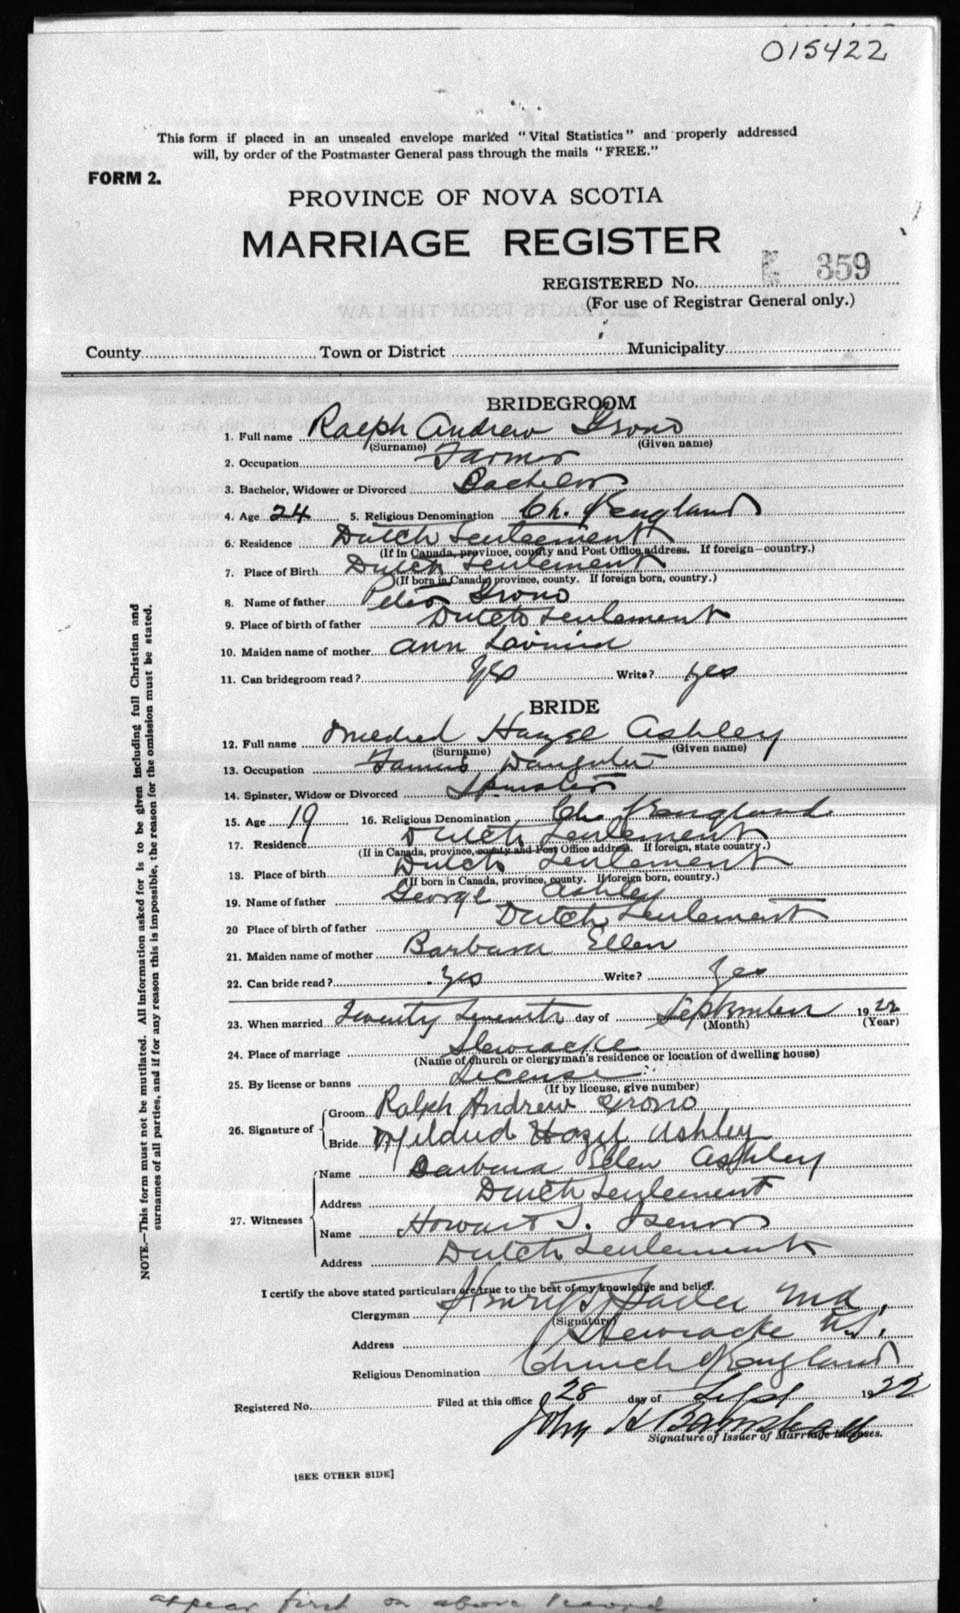 015422
This form if placed in an unsealed envelope marked "Vital Statistics" and properly addressed
will, by order of the Postmaster General pass through the mails "FREE."
FORM 2.
PROVINCE OF NOVA SCOTIA
MARRIAGE REGISTER
REGISTERED No. 359
(For use of Registrar General only.)
County Town or District Municipality
BRIDEGROOM
1. Full name Ralph Andrew Grono
(Surname) (Given name)
2. Occupation Farmer
3. Bachelor, Widower or Divorced Bachelor
4. Age 24 5. Religious Denomination Ch. of England
6. Residence Dutch Settlement
(If in Canada, province, county and Post Office address. If foreign—country.)
7. Place of Birth Dutch Settlement
(If born in Canada, province, county. If foreign born, country.)
8. Name of father Peter Grono
9. Place of birth of father Dutch Settlement
10. Maiden name of mother Ann Lavinia
11. Can bridegroom read? Yes Write? Yes
BRIDE
12. Full name Mildred Hazel Ashley
(Surname) (Given name)
13. Occupation Farmers Daughter
14. Spinster, Widow or Divorced Spinster
15. Age 19 16. Religious Denomination Ch. of England
17. Residence Dutch Settlement
(If in Canada, province, county and Post Office address. If foreign, state country.)
18. Place of birth Dutch Settlement
(If born in Canada, province, county. If foreign born, country.)
19. Name of father George Ashley
20 Place of birth of father Dutch Settlement
21. Maiden name of mother Barbara Ellen
22. Can bride read? Yes Write? Yes
23. When married Twenty Seventh day of September 1922
(Month) (Year)
24. Place of marriage Shewiacke
(Name of church or clergyman's residence or location of dwelling house)
25. By license or banns License
(If by license, give number)
26. Signature of
Groom Ralph Andrew Grono
Bride Mildred Hazel Ashley
27. Witnesses
Name Barbara Ellen Ashley
Address Dutch Settlement
Name Howard S. Isenor
Address Dutch Settlement
I certify the above stated particulars are true to the best of my knowledge and belief.
Clergyman Henry
(Signature)
Address Stewiacke N.S.
Religious Denomination Church of England
Registered No. Filed at this office 28 day of Sept 1922
John H
Signature of Issuer of Marriage Licenses.
[SEE OTHER SIDE]
NOTE.—This form must not be mutilated. All information asked for is to be given including full Christian and
surnames of all parties, and if for any reason this is impossible, the reason for the omission must be stated.
appear first on above record